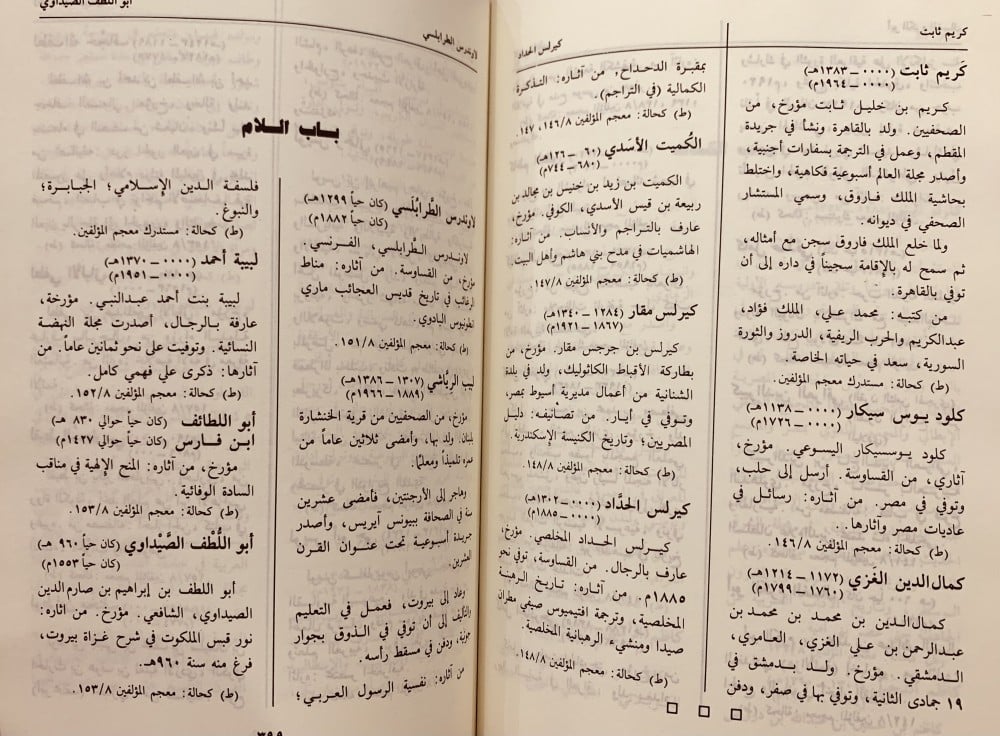 كريم ثابت
كيرلس الحداد
كَريم ثابت (٠٠٠٠ ــ ١٣٨٣هـ)
(٠٠٠٠ ــ ١٩٦٤م)
كريم بن خليل ثابت مؤرخ، من
الصحفيين. ولد بالقاهرة ونشأ في جريدة
المقطم، وعمل في الترجمة بسفارات أجنبية،
وأصدر مجلة العالم أسبوعية فكاهية، واختلط
بحاشية الملك فاروق، وسمي المستشار
الصحفي في ديوانه.
ولما خلع الملك فاروق سجن مع أمثاله،
ثم سمح له بالإقامة سجيناً في داره إلى أن
توفي بالقاهرة.
من كتبه: محمد علي، الملك فؤاد،
عبدالكريم والحرب الريفية، الدروز والثورة
السورية، سعد في حياته الخاصة.
(ط) كحالة: مستدرك معجم المؤلفين.
كلود يوس سيكار (٠٠٠٠ ــ ١١٣٨هـ)
(٠٠٠٠ ــ ١٧٢٦م)
كلود يوسسيكار اليسوعي. مؤرخ،
آثاري، من القساوسة. أرسل إلى حلب،
وتوفي في مصر. من آثاره: رسائل في
عاديات مصر وآثارها..
(ط) كحالة: معجم المؤلفين ١٤٦/٨.
كمال الدين الغَزي (١١٧٢ ــ ١٢١٤هـ)
(١٧٦٠ ــ ١٧٩٩م)
كمال الدين بن محمد بن محمد بن
عبدالرحمن بن علي الغزي، العامري،
الدمشقي. مؤرخ. ولد بدمشق في
١٩ جمادى الثانية، وتوفي بها في صفر، ودفن
بمقبرة الدحداح، من آثاره: التذكرة
الكمالية (في التراجم).
(ط) كحالة: معجم المؤلفين ١٤٦/٨، ١٤٧.
الكُميت الأسَدي (٦٠ ــ ١٢٦هـ)
(٦٨٠ ــ ٧٤٤م)
الكميت بن زيد بن خنيس بن مجالد بن
ربيعة بن قيس الأسدي، الكوفي. مؤرخ،
عارف بالتراجم والأنساب. من آثاره:
الهاشميات في مدح بني هاشم وأهل البيت
(ط) كحالة: معجم المؤلفين ١٤٧/٨.
كيرلس مقار (١٢٨٤ ــ ١٣٤٠هـ)
(١٨٦٧ ــ ١٩٢١م)
كيرلس بن جرجس مقار. مؤرخ، من
بطاركة الأقباط الكاثوليك، ولد في بلدة
الشنانية من أعمال مديرية أسيوط بمصر،
وتوفي في أيار. من تصانيفه: دليل
المصريين؛ وتاريخ الكنيسة الإسكندرية.
(ط) كحالة: معجم المؤلفين ١٤٨/٨.
كيرلس الحَدَّاد (٠٠٠٠ ــ ١٣٠٢هـ)
(٠٠٠٠ ــ ١٨٨٥م)
كيرلس الحداد المخلصي. مؤرخ،
عارف بالرجال. من القساوسة، توفي نحو
١٨٨٥م. من آثاره: تاريخ الرهبنة
المخلصية، وترجمة افتيموس صيفي مطران
صيدا ومنشيء الرهبانية المخلصية.
(ط) كحالة: معجم المؤلفين ١٤٨/٨.
لاوندرس الطرابلسي
أبو اللطف الصيداوي
باب اللام
لاوندرس الطَّرابُلْسي (كان حياً ١٢٩٩هـ)
(كان حياً ١٨٨٢م)
لاوندرس الطَّرابلسي، الفرنسي.
مؤرخ، من القساوسة. من آثاره: مناط
الرغائب في تاريخ قديس العجائب ماري
انطونيوس البادوي.
(ط) كحالة: معجم المؤلفين ١٥١/٨.
لبيب الرياشي (١٣٠٧ ــ ١٣٨٦هـ)
(١٨٨٩ ــ ١٩٦٦م)
مؤرخ، من الصحفيين من قرية الخنشارة
بلبنان. ولد بها، وأمضى ثلاثين عاماً من
عمره تلميذاً ومعلماً.
وهاجر إلى الأرجنتين، فأمضى عشرين
سنة في الصحافة ببيونس آيريس، وأصدر
جريدة أسبوعية تحت عنوان القرن
العشرين.
وعاد إلى بيروت، فعمل في التعليم
والتأليف إلى أن توفي في الذوق بجوار
جونية، ودفن في مسقط رأسه.
من آثاره: نفسية الرسول العربي؛
فلسفة الدين الإسلامي؛ الجبابرة؛
والنبوغ.
(ط) كحالة: مستدرك معجم المؤلفين.
لبيبة أحمد (٠٠٠٠ ــ ١٣٧٠هـ)
(٠٠٠٠ ــ ١٩٥١م)
لبيبة بنت أحمد عبدالنبي. مؤرخة،
عارفة بالرجال، أصدرت مجلة النهضة
النسائية. وتوفيت على نحو ثمانين عاماً. من
آثارها: ذكرى علي فهمي كامل.
(ط) كحالة: معجم المؤلفين ١٥٢/٨.
أبو اللطائف (كان حياً حوالي ٨٣٠ هـ)
ابن فارس (كان حياً حوالي ١٤٢٧م)
مؤرخ، من آثاره: المنح الإلهية في مناقب
السادة الوفائية.
(ط) كحالة: معجم المؤلفين ١٥٣/٨.
أبو اللُّطْف الصَّيْداوي (كان حياً ٩٦٠ هـ)
(كان حياً ١٥٥٣م)
أبو اللطف بن إبراهيم بن صارم الدين
الصيداوي، الشافعي. مؤرخ. من آثاره:
نور قبس الملكوت في شرح غزاة بيروت،
فرغ منه سنة ٩٦٠هـ.
(ط) كحالة: معجم المؤلفين ١٥٣/٨.
٣٩٩